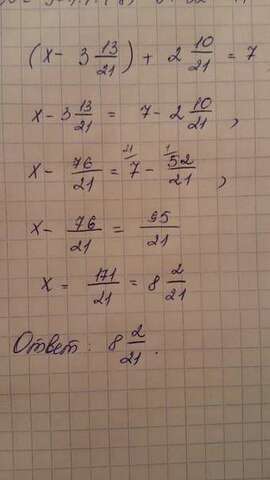 (x - 3 13/21) + 2 10/21 = 7
x - 3 13/21 = 7 - 2 10/21 ,
x - 76/21 = 21/7 - 1/52/21 ,
x - 76/21 = 95/21
x = 171/21 = 8 2/21
Ответ: 8 2/21.